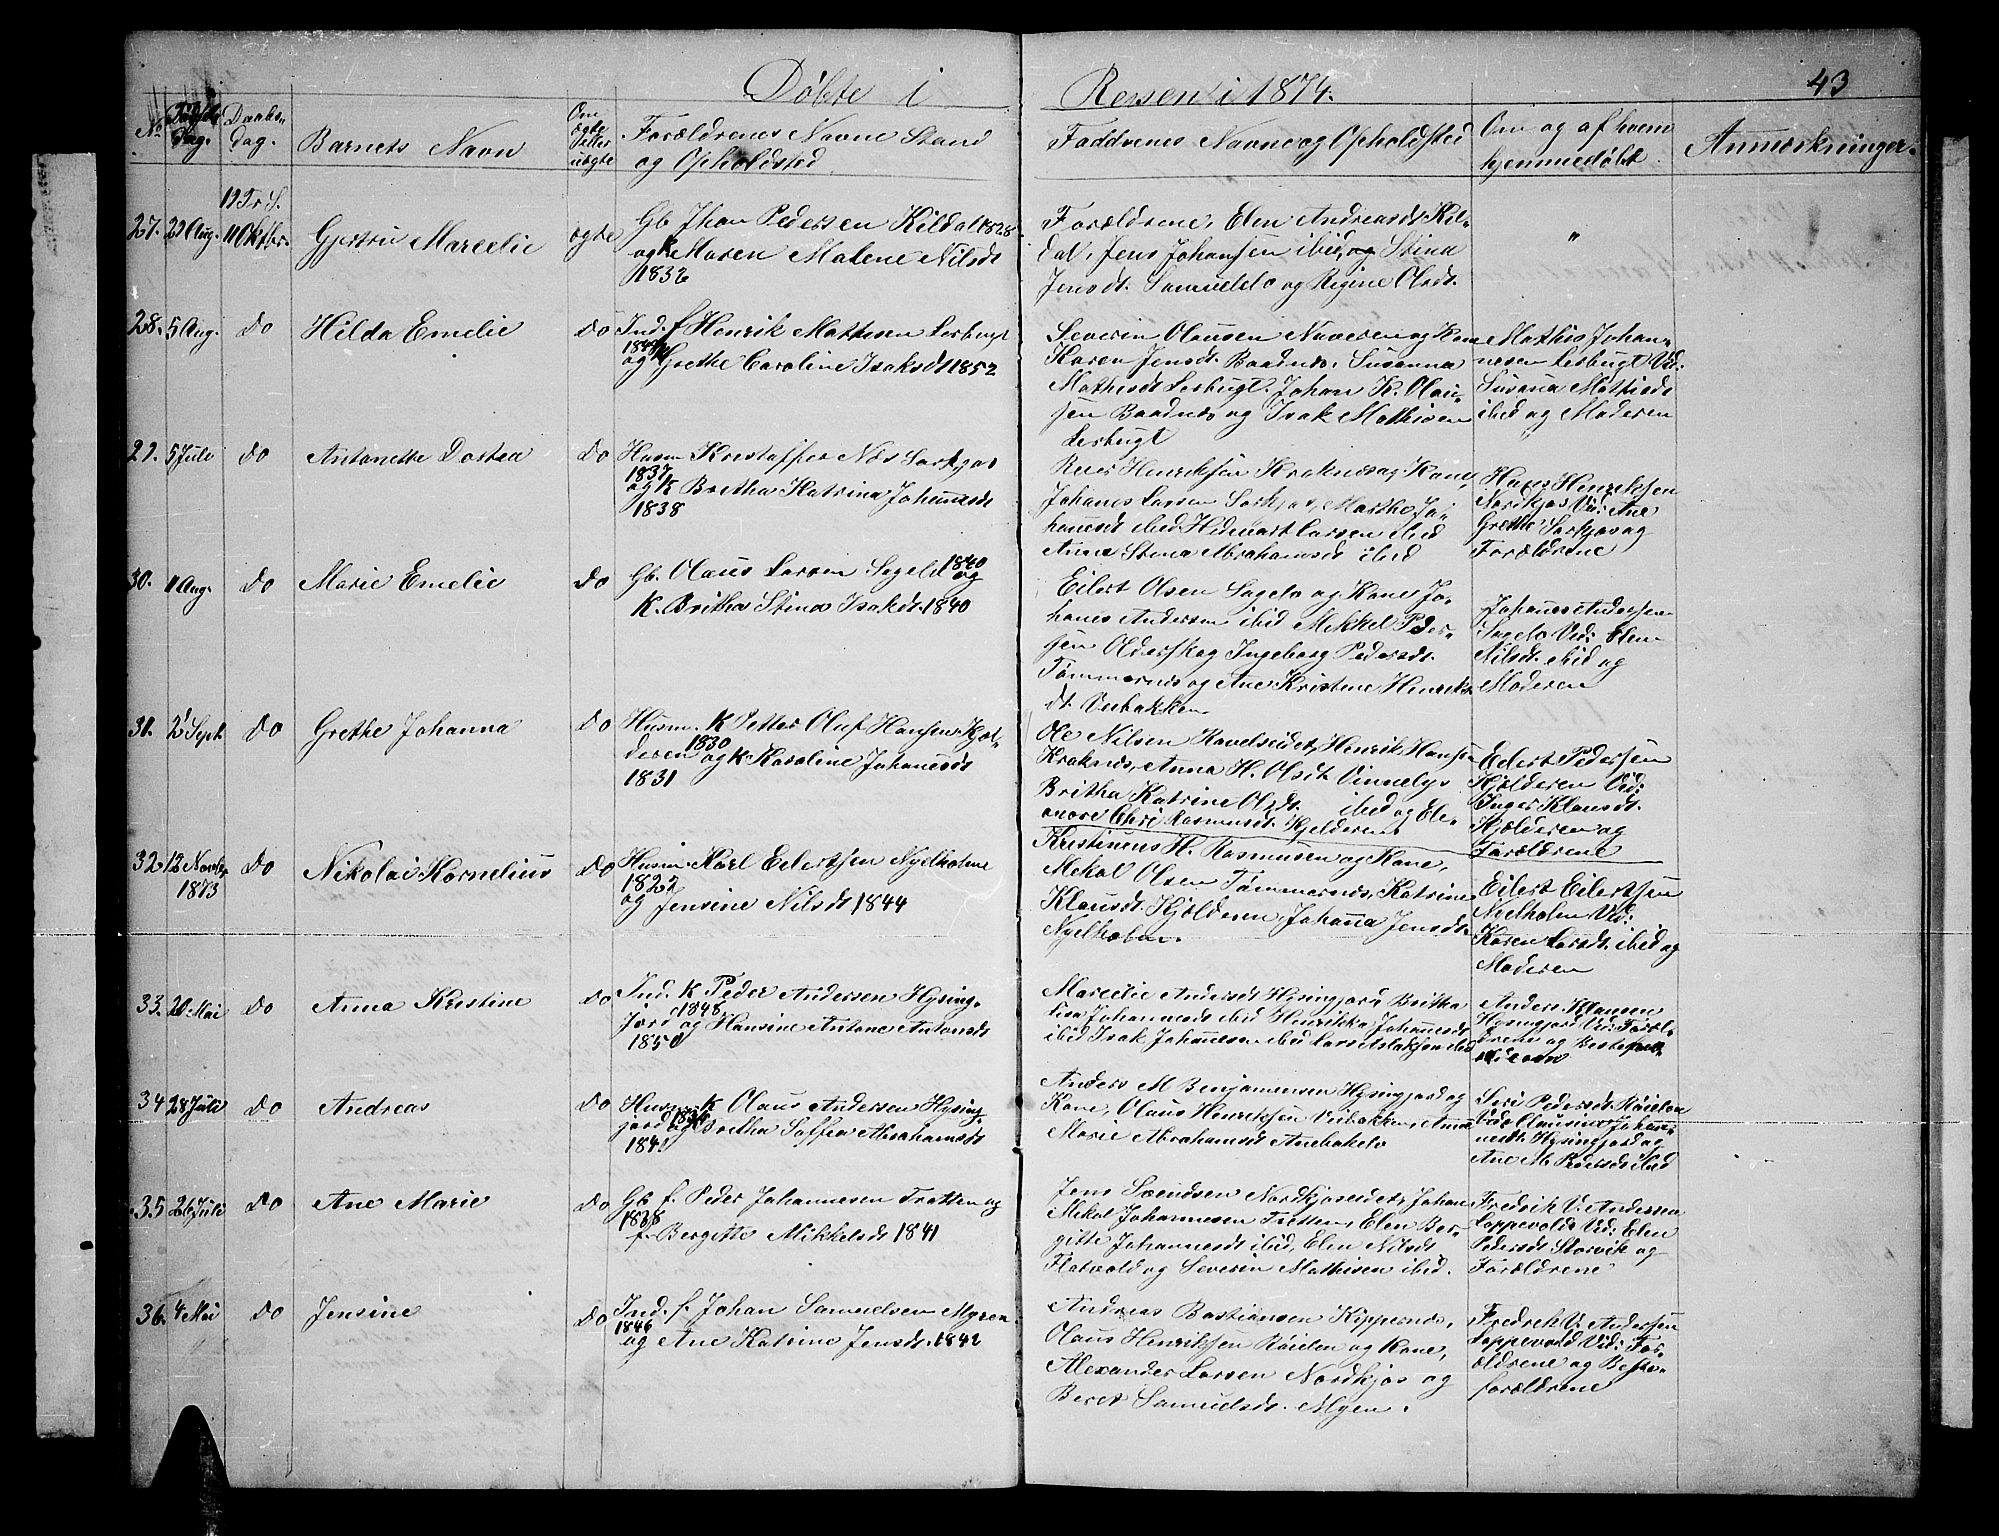 Døbte i
Ressen i 1874.
43
No
Fødsels
dag.
Daabs-
dag.
Barnets Navn
Om
ægte
eller
uægte
Forældrenes Navne Stand
og Opholdsted
Faddrenes Navne og Opholdsted
Om og af hvem
hjemmedøbt.
Anmærkninger.
19 Tr. S.
27. 29 Aug. 11 Oktbr. Gjertru Marcelie ægte
Gb Jhan Pedersen Kildal 1828
og k Maren Malene Nilsdt
1832
Forældrene, Elen Andreasdt Kil-
dal, Jens Johansen ibid, og Stina
Jensdt. Samuelslo og Regine Olsdt.
"
28. 5 Aug. do Hilda Emelie do
Ind. f Henrik Mathisen Lerbugt
og Grethe Caroline Isaksdt 1852
Severin Olausen Naveren og Kone
Karen Jensdt. Baadnes, Susanna
Mathisdt Lerbugt. Johan K. Olau-
sen Baadnes og Isak Mathisen
Lerbugt
Mathis Johan-
nesen Lerbugt Vid:
Susana Mathisdt
ibid og Moderen
29. 5 Juli do Antonette Dortea do
Husm Kristoffer Nils Sørkjos
1837
og k Britha Katrina Johannesdt
1838
Peter Henriksen Kraknes og Kone,
Johanes Larsen Sørkjos, Marthe Jo-
hanesdt ibid Hidevart Larsen ibid
Anne Stina Abrahamsdt ibid
Hans Henriksen
Norkjos Vid: Ane
Grethe Sørkjos og
Forældrene
30. 1 Aug. do Marie Emelie do
Gb. Olaus Larsen Sagelv 1840
og
k. Britha Stina Isaksdt. 1840
Eilert Olsen Sagelv og Kone, Jo-
hanes Andersen ibid Mikkel Peder-
sen Olderskog Ingeborg Pedersdt.
Tømmernes og Ane Kristine Henriks-
dt. Veibakken
Johannes Andersen
Sagelv Vid: Elen
Nilsdt. ibid og
Moderen
31. 21 Sept do Grethe Johanna do
Husm. k Petter Oluf Hansen Kjøl-
deren 1830 og k Karoline Johanesdt
1831
Ole Nilsen Havelseidet, Henrik Hansen
Kraknes, Anna H. Olsdt Vinnelys
Britha Katrine Olsdt. ibid og Ele-
onore Chri Rasmusdt. Kjelderen
Eilert Pedersen
Kjølderen Vid:
Inger Klausdt.
Kjølderen og
Forældrene
32. 12 Novbr do Nikolai Kornelius do
1873
Husm. Karl Eilertsen Nyelholme
1827
og Jensine Nilsdt 1844
Kristinus H. Rasmusen og Kone,
Mekal Olsen Tømmernes, Katrine
Klausdt. Kjølderen, Johanna Jensdt.
Nyelholm.
Eilert Eilertsen
Nyelholm Vid:
Karen Larsdt. ibid og
Moderen
33. 20 Mai do Anna Kristine do
Ind. k Peder Andersen Hysing-
jord 1848 og Hansine Antona Antonsdt
1850
Marcelie Andersdt Hysingjord Britha
Lisa Johannesdt ibid Henrikka Johannesdt
ibid Isak Johannesen ibid Lars Aslaksen ibid
Anders Klausen
Hysingjord Vid: Foræl-
drene og Bestefor-
ældrene
34 28 Juli do Andreas do
Husm. k Olaus Andersen Hysing-
jord og k Britha Soffia Abrahamsdt
1840
Anders M Benjaminsen Hysingjord og
Kone, Olaus Henriksen Veibakken, Anne
Marie Abrahamsdt Andbakelv
Seri Pedersdt. Røielen
Vid: Klausine Johan-
nesdt. Hysingjord og
Ane M. Pedersdt ibid
35 26 Juli do Ane Marie do
Gb f. Peder Johannesen Tretten og
1838
f. Bergitte Mikkelsdt 1841
Jens Svendsen Nordkjoseidet, Johan
Mikal Johannesen Tretten, Elen Ber-
gitte Johannesdt ibid, Elen Nilsdt
Flatvold og Severin Mathisen ibid.
Fredrik V. Andersen
Loppevold Vid: Elen
Pedersdt Storvik og
Forældrene
36. 4 Mai do Jensine do
Ind. f. Johan Samuelsen Myren
1846
og Ane Katrina Jensdt. 1842
Andreas Bastiansen Kippernes,
Olaus Henriksen Røielen og Kone,
Alexander Larsen Nordkjos og
Beret Samuelsdt. Myen.
Fredrek V. Andersen
Loppevold Vid: For-
ældrene og Beste-
forældrene